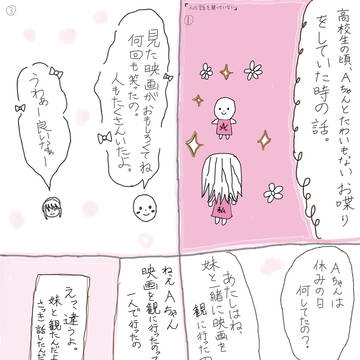 「人の話を覚えていない」
①
高校生の頃、Aちゃんとたわいもないお喋り
をしていた時の話。
A
私
Aちゃんは
休みの日
何してたの?
あたしはね、
妹と一緒に映画を
観に行ったの
ねぇAちゃん
映画を観に行ったのって
一人で行ったの
えっ、違うよ。
妹と観たんだよ
さっき話してたんだ
③
見た映画がおもしろくてね
何回も笑ったの。
人もたくさんいたよ。
うわぁー良いなぁー